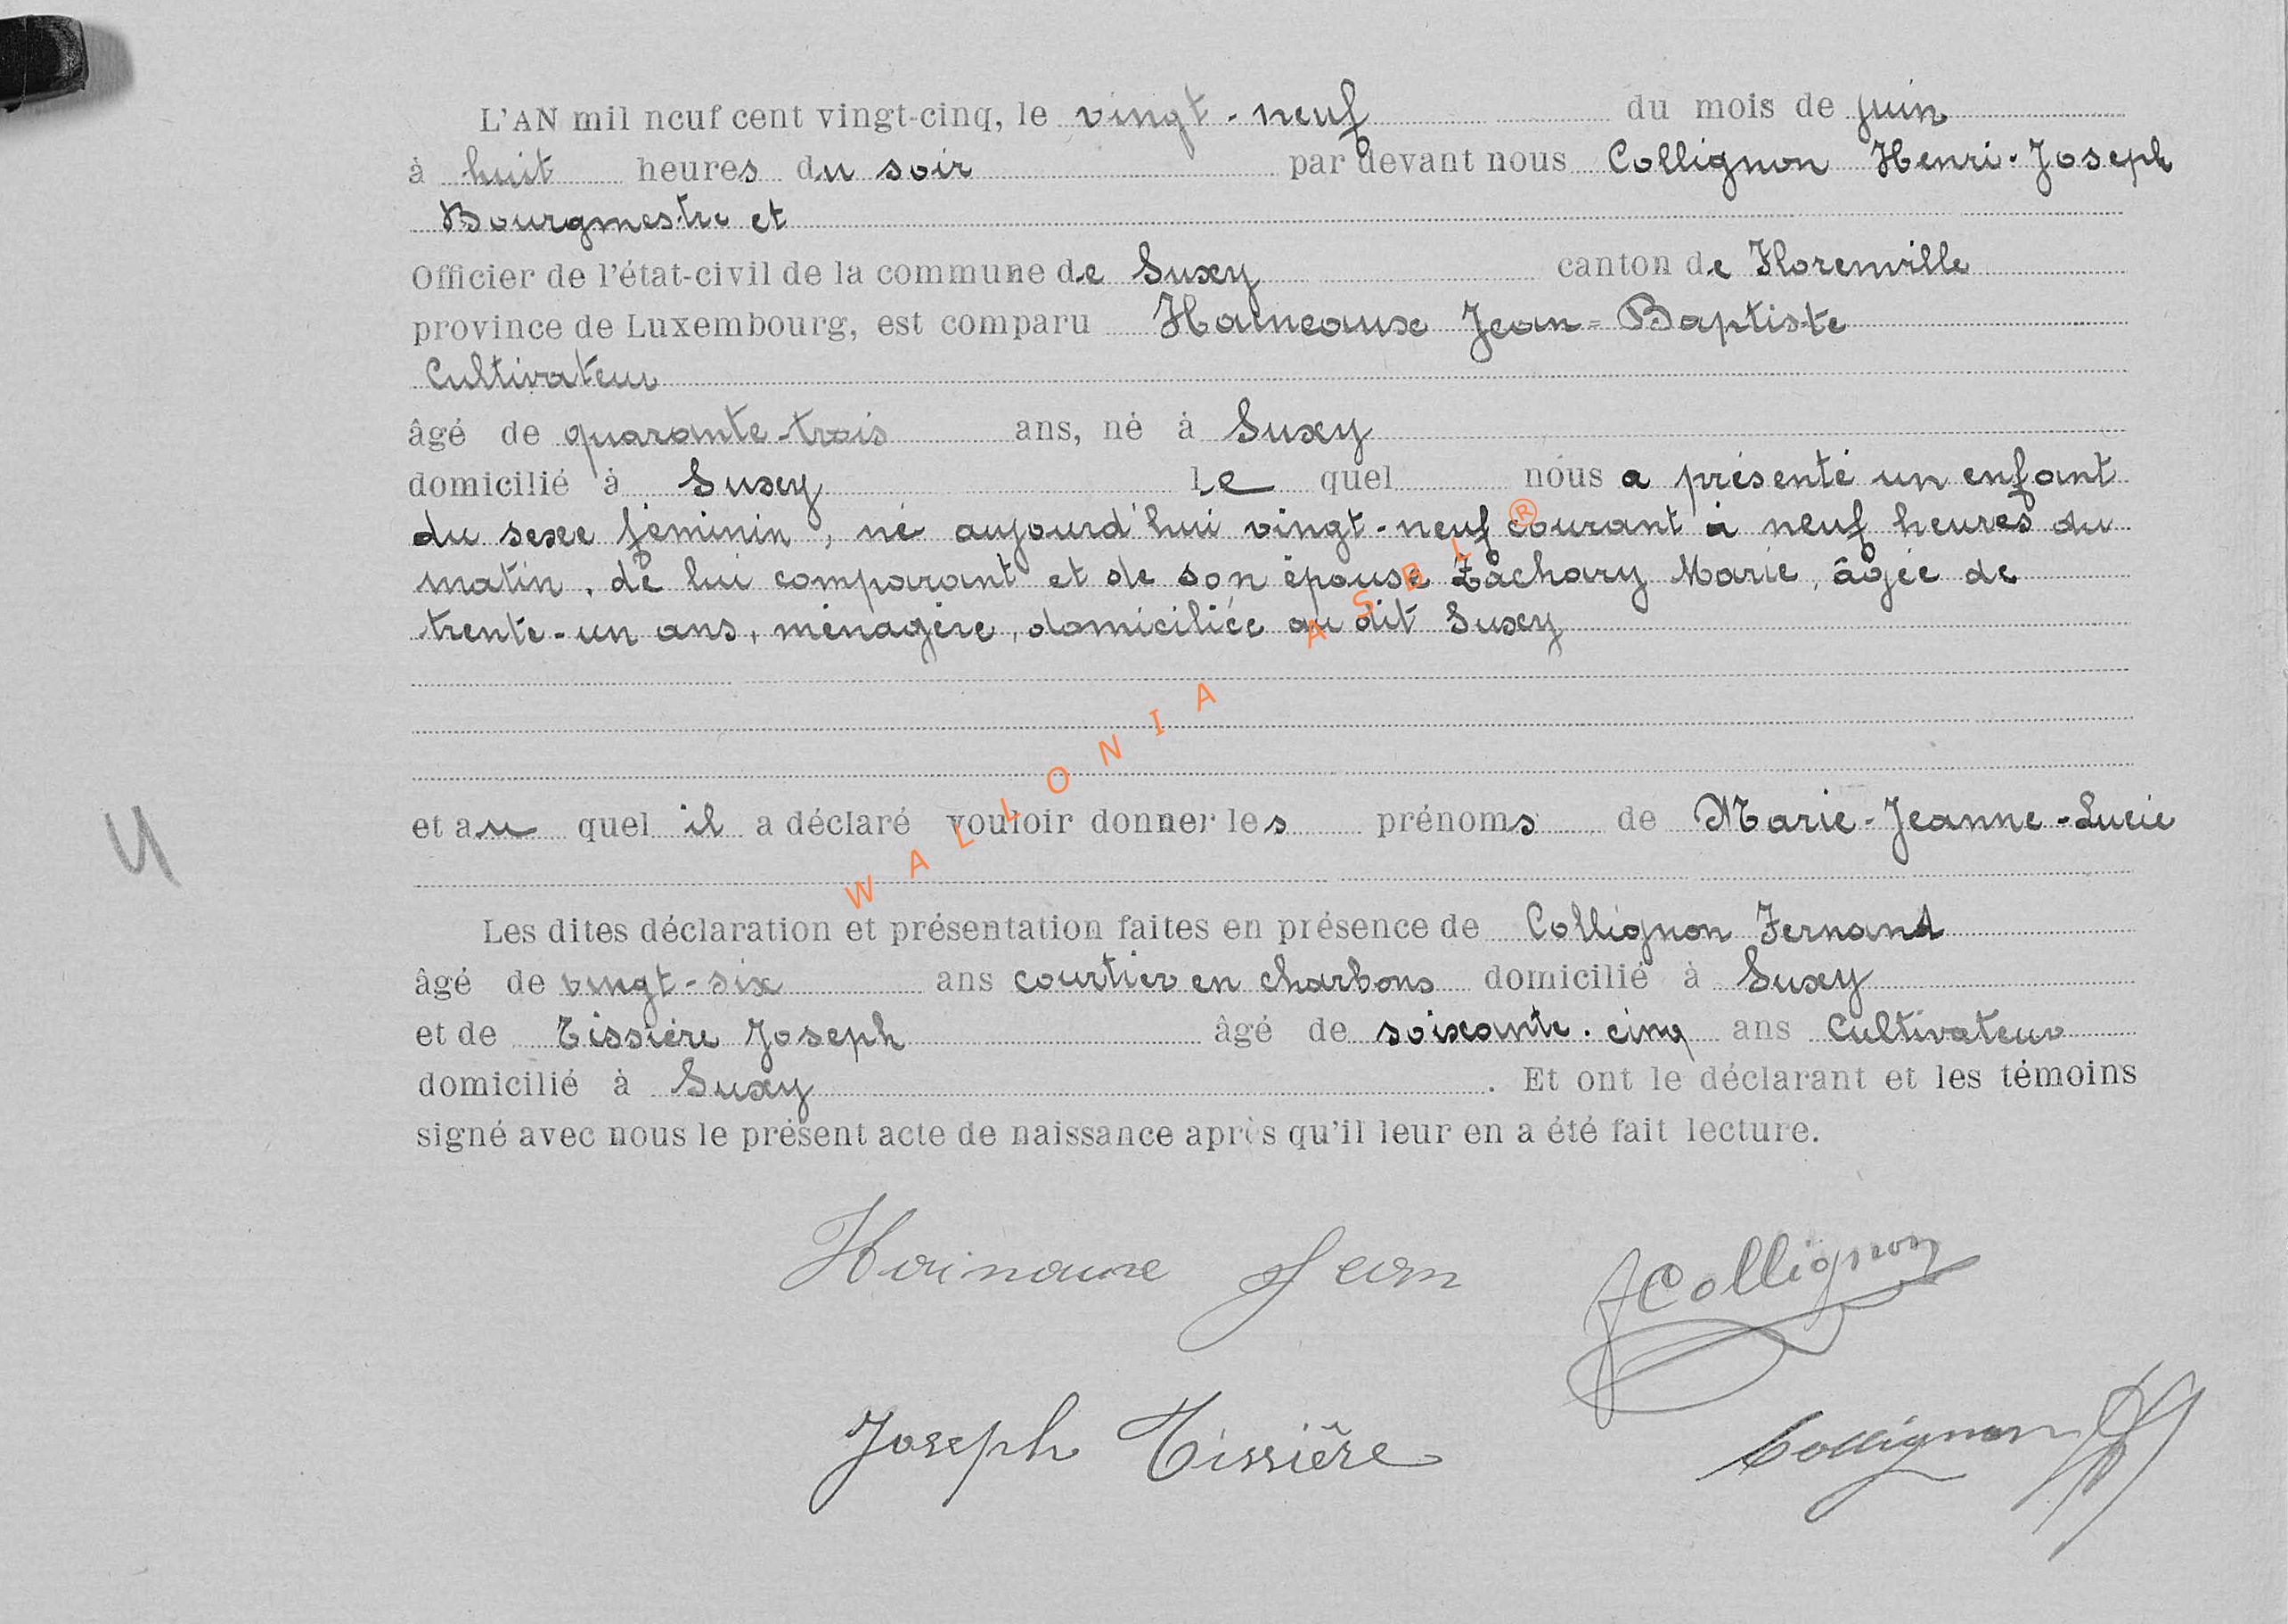 L'AN mil neuf cent vingt-cinq, le vingt-neuf du mois de juin
à huit heures du soir par devant nous Collignon Henri-Joseph
Bourgmestre et
Officier de l'état-civil de la commune de Suxy canton de Florenville
province de Luxembourg, est comparu Haineaux Jean-Baptiste
Cultivateur
âgé de quarante-trois ans, né à Suxy
domicilié à Suxy Le quel nous a présenté un enfant
du sexe féminin, né aujourd'hui vingt-neuf courant à neuf heures du
matin, de lui comparant et de son épouse Zachary Marie, âgée de
trente-un ans, ménagère, domiciliée au dit Suxy
et au quel il a déclaré vouloir donner les prénoms de Marie-Jeanne-Lucie
Les dites déclaration et présentation faites en présence de Collignon Fernand
âgé de vingt-six ans courtier en charbons domicilié à Suxy
et de Tissière Joseph âgé de soixante-cinq ans Cultivateur
domicilié à Suxy. Et ont le déclarant et les témoins
signé avec nous le présent acte de naissance après qu'il leur en a été fait lecture.
Hainaux Jean
FCollignon
Joseph Tissière
Collignon
WALLONIA ASBL ®